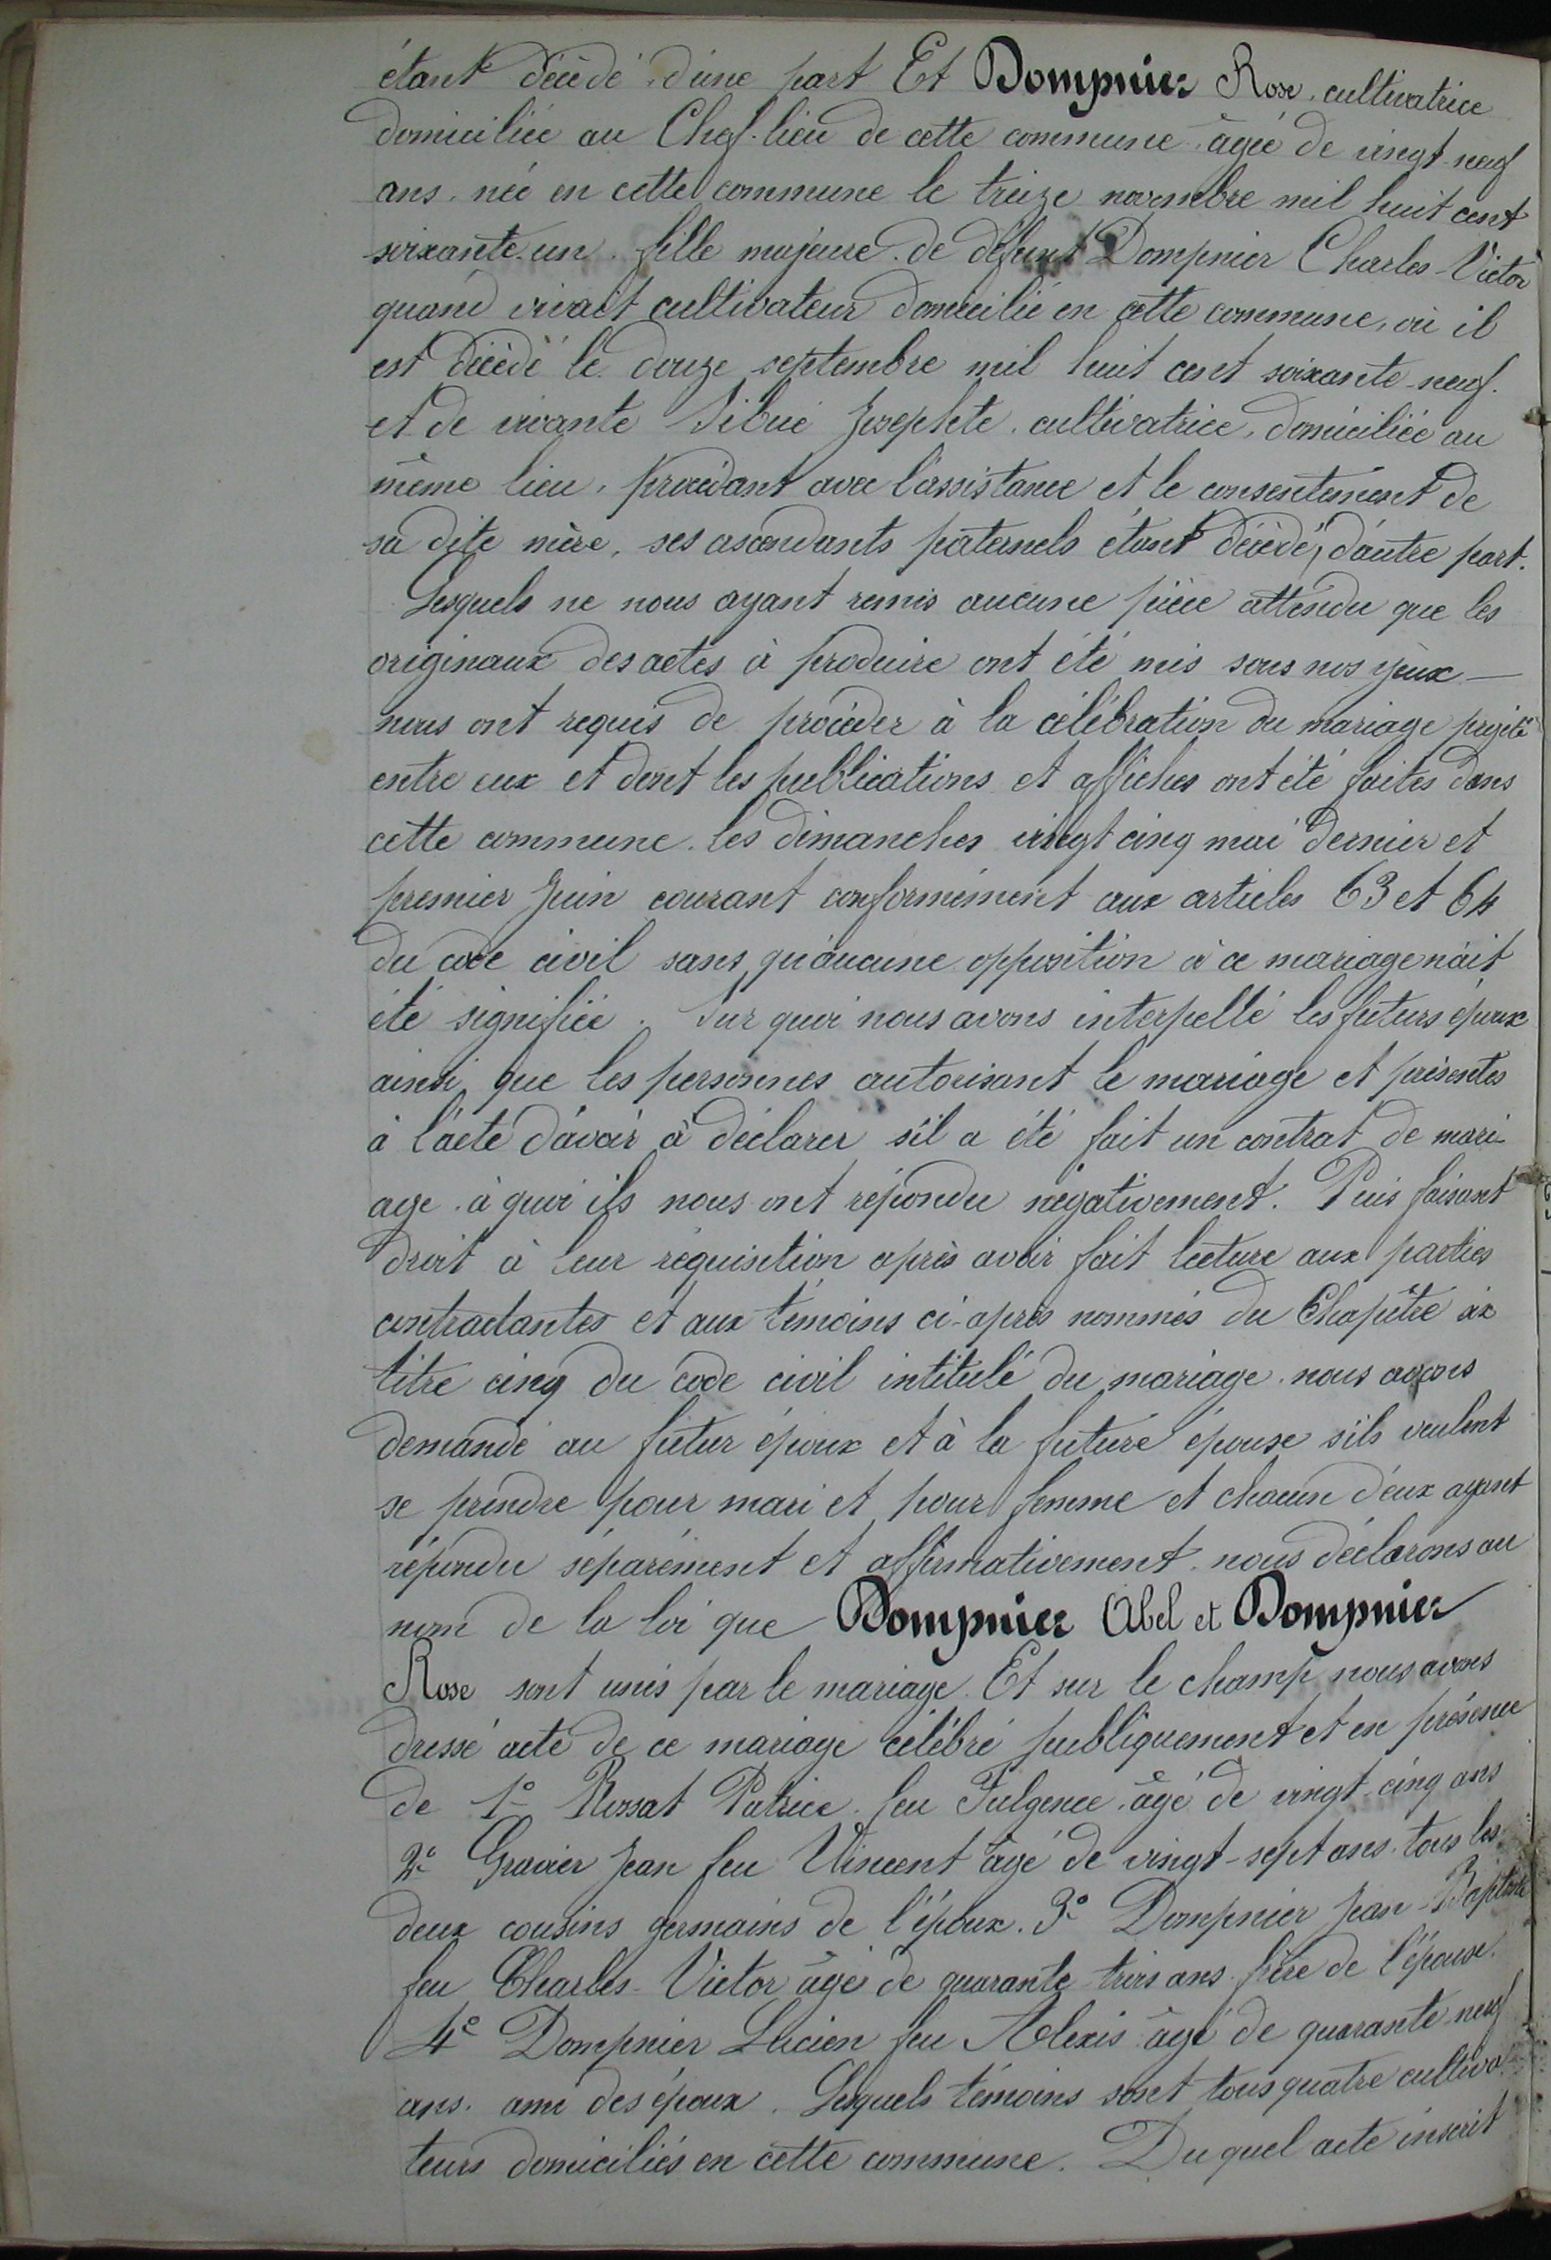 étant décédé, d'une part Et Dompnier Rose, cultivatrice
domiciliée au Chef-lieu de cette commune, âgée de vingt-neuf
ans, née en cette commune le treize novembre mil huit cent
soixante-un, fille majeure de défunt Dompnier Charles-Victor
quand vivait cultivateur domicilié en cette commune, où il
est décédé le douze septembre mil huit cent soixante-neuf.
et de vivante Sibué Josephte, cultivatrice, domiciliée au
même lieu, procédant avec l'assistance et le consentement de
sa dite mère, ses ascendants paternels étant décédés, d'autre part.
Lesquels ne nous ayant remis aucune pièce attendu que les
originaux des actes à produire ont été mis sous nos yeux —
nous ont requis de procéder à la célébration du mariage projeté
entre eux et dont les publications et affiches ont été faites dans
cette commune les dimanches vingt cinq mai dernier et
premier Juin courant conformément aux articles 63 et 64
du code civil sans qu'aucune opposition à ce mariage n'ait
été signifiée. Sur quoi nous avons interpellé les futurs époux
ainsi que les personnes autorisant le mariage et présentes
à l'acte d'avoir à déclarer s'il a été fait un contrat de mari-
age, à quoi ils nous ont répondu négativement. Puis faisant
droit à leur réquisition après avoir fait lecture aux parties
contractantes et aux témoins ci-après nommés du Chapitre six
titre cinq du code civil intitulé du mariage, nous avons
demandé au futur époux et à la future épouse s'ils veulent
se prendre pour mari et pour femme et chacun d'eux ayant
répondu séparément et affirmativement, nous déclarons au
nom de la loi que Dompnier Abel et Dompnier
Rose sont unis par le mariage. Et sur le champ nous avons
dressé acte de ce mariage célébré publiquement et en présence
de 1° Rossat Patrice feu Fulgence, âgé de vingt-cinq ans
2° Gravier Jean feu Vincent âgé de vingt-sept ans, tous les
deux cousins germains de l'époux. 3° Dompnier Jean-Baptiste
feu Charles-Victor âgé de quarante-trois ans frère de l'épouse.
4° Dompnier Lucien feu Alexis âgé de quarante-neuf
ans, ami des époux. Lesquels témoins sont tous quatre cultiva-
teurs domiciliés en cette commune. Du quel acte inscrit